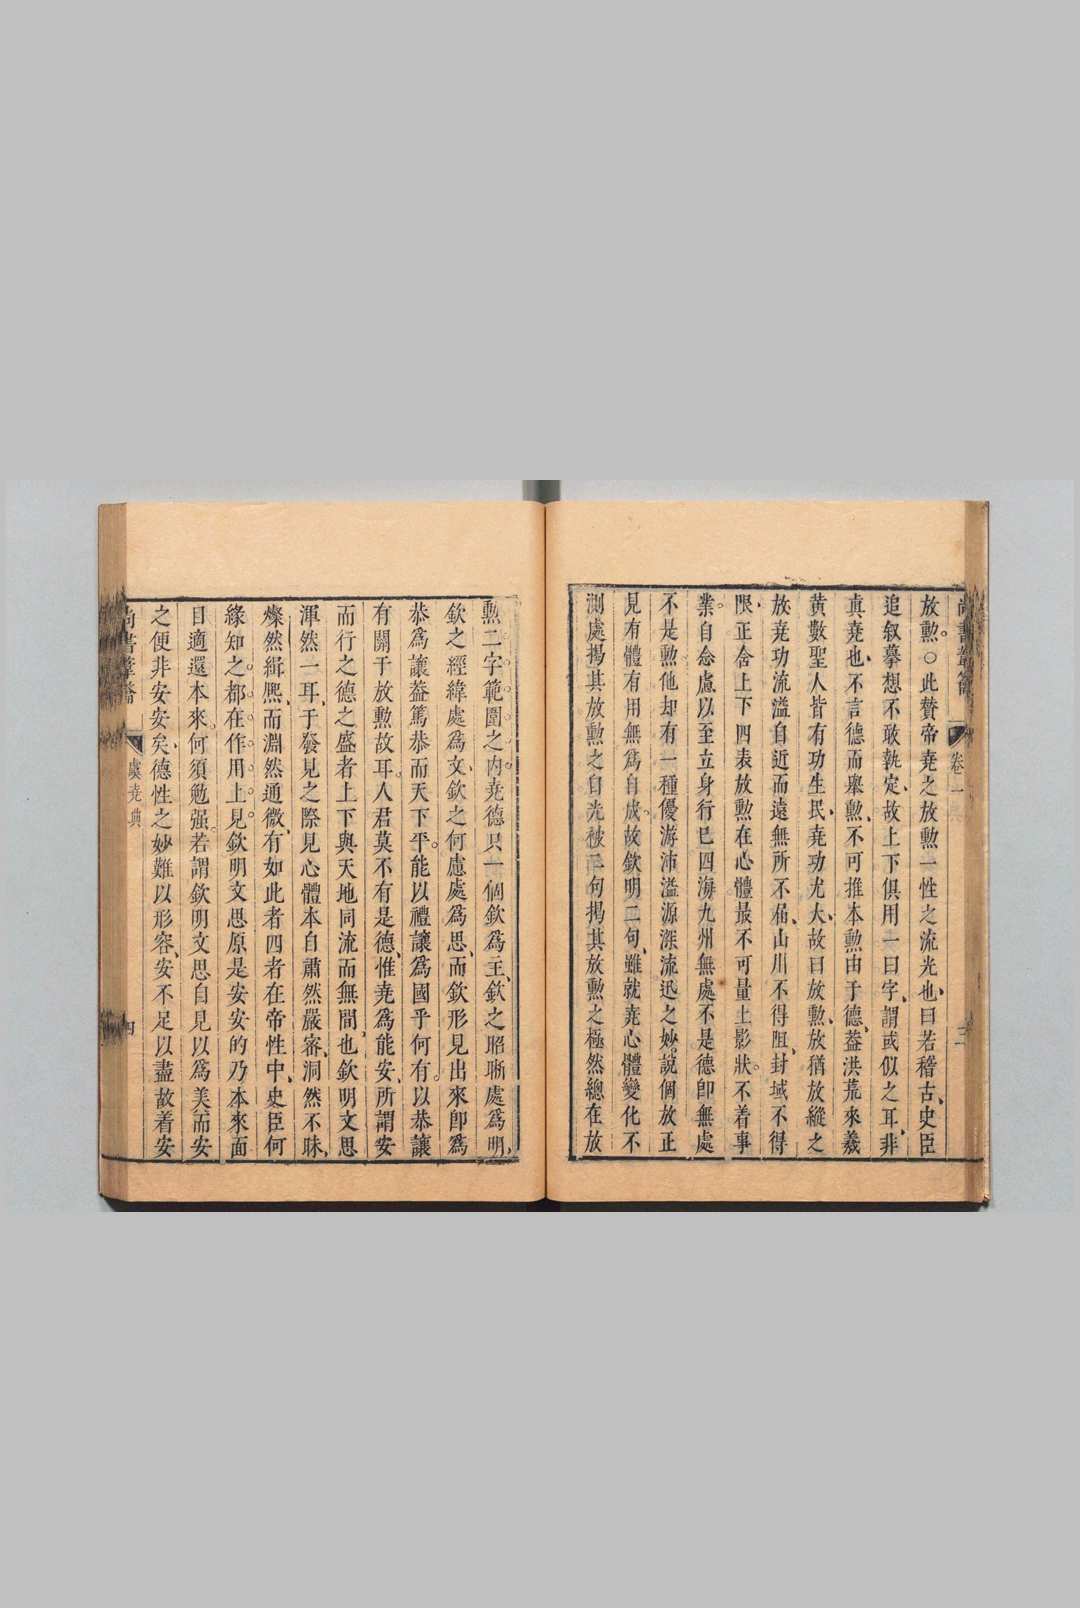 放勲○此贊帝堯之放勲一性之流光也曰若稽古史臣
追叙摹想不敢執定故上下俱用一曰字謂或似之耳非
眞堯也不言德而舉勲不可推本勲由于德葢洪荒來羲
黄數聖人皆有功生民堯功尤大故曰放勲放猶放縱之
放堯功流溢自近而遠無所不届山川不得阻封域不得
限正舍上下四表放勲在心體最不可量上影狀不着事
業自念慮以至立身行巳四海九州無處不是德卽無處
不是勲他却有一種優游沛溢源深流迅之妙說個放正
見有體有用無爲自成故欽明二句雖就堯心體變化不
測處揭其放勲之自光被三句揭其放勲之極然總在放
卷一
尚書葦籥
虞堯典
四
勲二字範圍之内堯德只一個欽爲主欽之昭晣處爲明
欽之經緯處爲文欽之何慮處爲思而欽形見出來卽爲
恭爲讓葢篤恭而天下平能以禮讓爲國乎何有以恭讓
有關于放勲故耳人君莫不有是德惟堯爲能安所謂安
而行之德之盛者上下與天地同流而無間也欽明文思
渾然一耳于發見之際見心體本自肅然嚴密洞然不昧
燦然緝熙而淵然通微有如此者四者在帝性中史臣何
緣知之都在作用上見欽明文思原是安安的乃本來面
目適還本來何須勉强若謂欽明文思自見以爲美而安
之便非安安矣德性之妙難以形容安不足以盡故着安